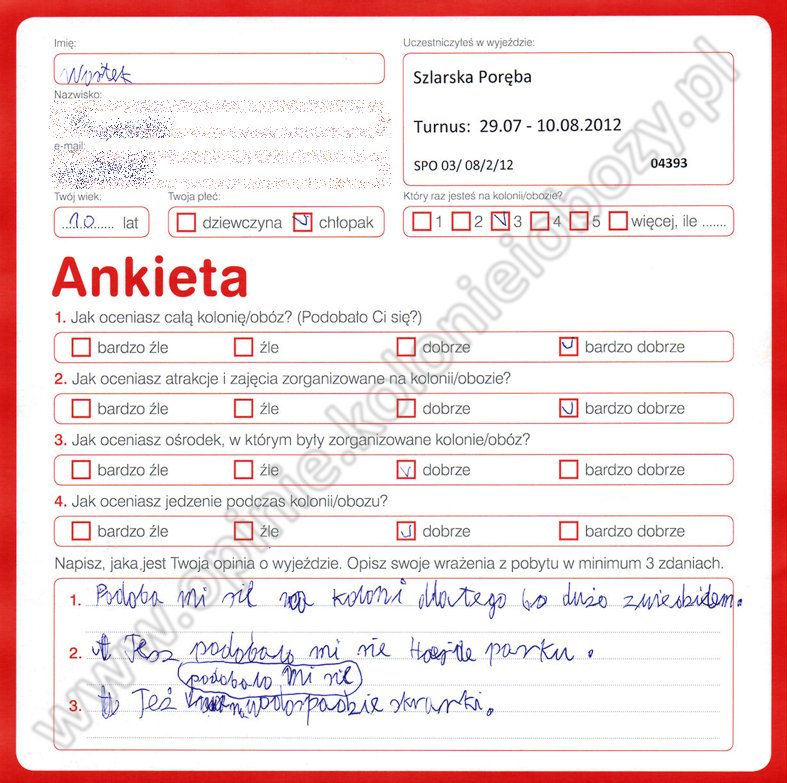 Imię:
Wojtek
Uczestniczyłeś w wyjeździe:
Szlarska Poręba
Turnus: 29.07 - 10.08.2012
SPO 03/ 08/2/12 04393
Nazwisko:
e-mail:
Twój wiek:
10 lat
Twoja płeć:
dziewczyna chłopak
Który raz jesteś na kolonii/obozie?
1 2 3 4 5 więcej, ile .......
Ankieta
1. Jak oceniasz całą kolonię/obóz? (Podobało Ci się?)
bardzo źle źle dobrze bardzo dobrze
2. Jak oceniasz atrakcje i zajęcia zorganizowane na kolonii/obozie?
bardzo źle źle dobrze bardzo dobrze
3. Jak oceniasz ośrodek, w którym były zorganizowane kolonie/obóz?
bardzo źle źle dobrze bardzo dobrze
4. Jak oceniasz jedzenie podczas kolonii/obozu?
bardzo źle źle dobrze bardzo dobrze
Napisz, jaka jest Twoja opinia o wyjeździe. Opisz swoje wrażenia z pobytu w minimum 3 zdaniach.
1. Podoba mi sie na koloni dlatego bo dużo zwiedziłem.
2. Tesz podobało mi sie w parku.
podobało mi sie
3. Też wodospadzie skrarki.
www.opinie.kolonieiobozy.pl